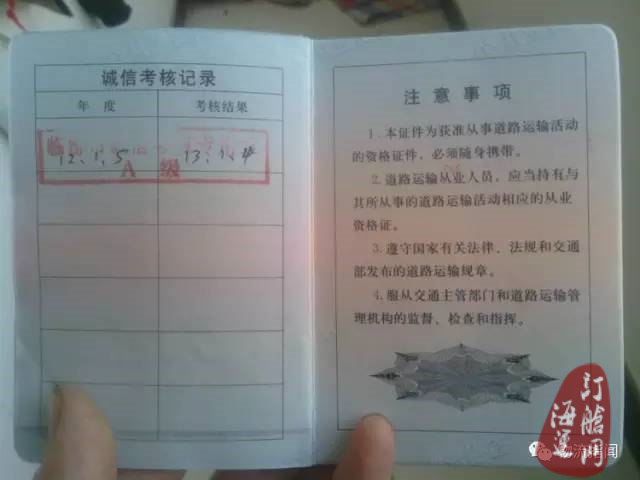 诚信考核记录
年 度 考核结果
12.1.5 13.1.4
A 级
注意事项
1.本证件为获准从事道路运输活动
的资格证件，必须随身携带。
2.道路运输从业人员，应当持有与
其所从事的道路运输活动相应的从业
资格证。
3.遵守国家有关法律、法规和交通
部发布的道路运输规章。
4.服从交通主管部门和道路运输管
理机构的监督、检查和指挥。
海运
订舱网